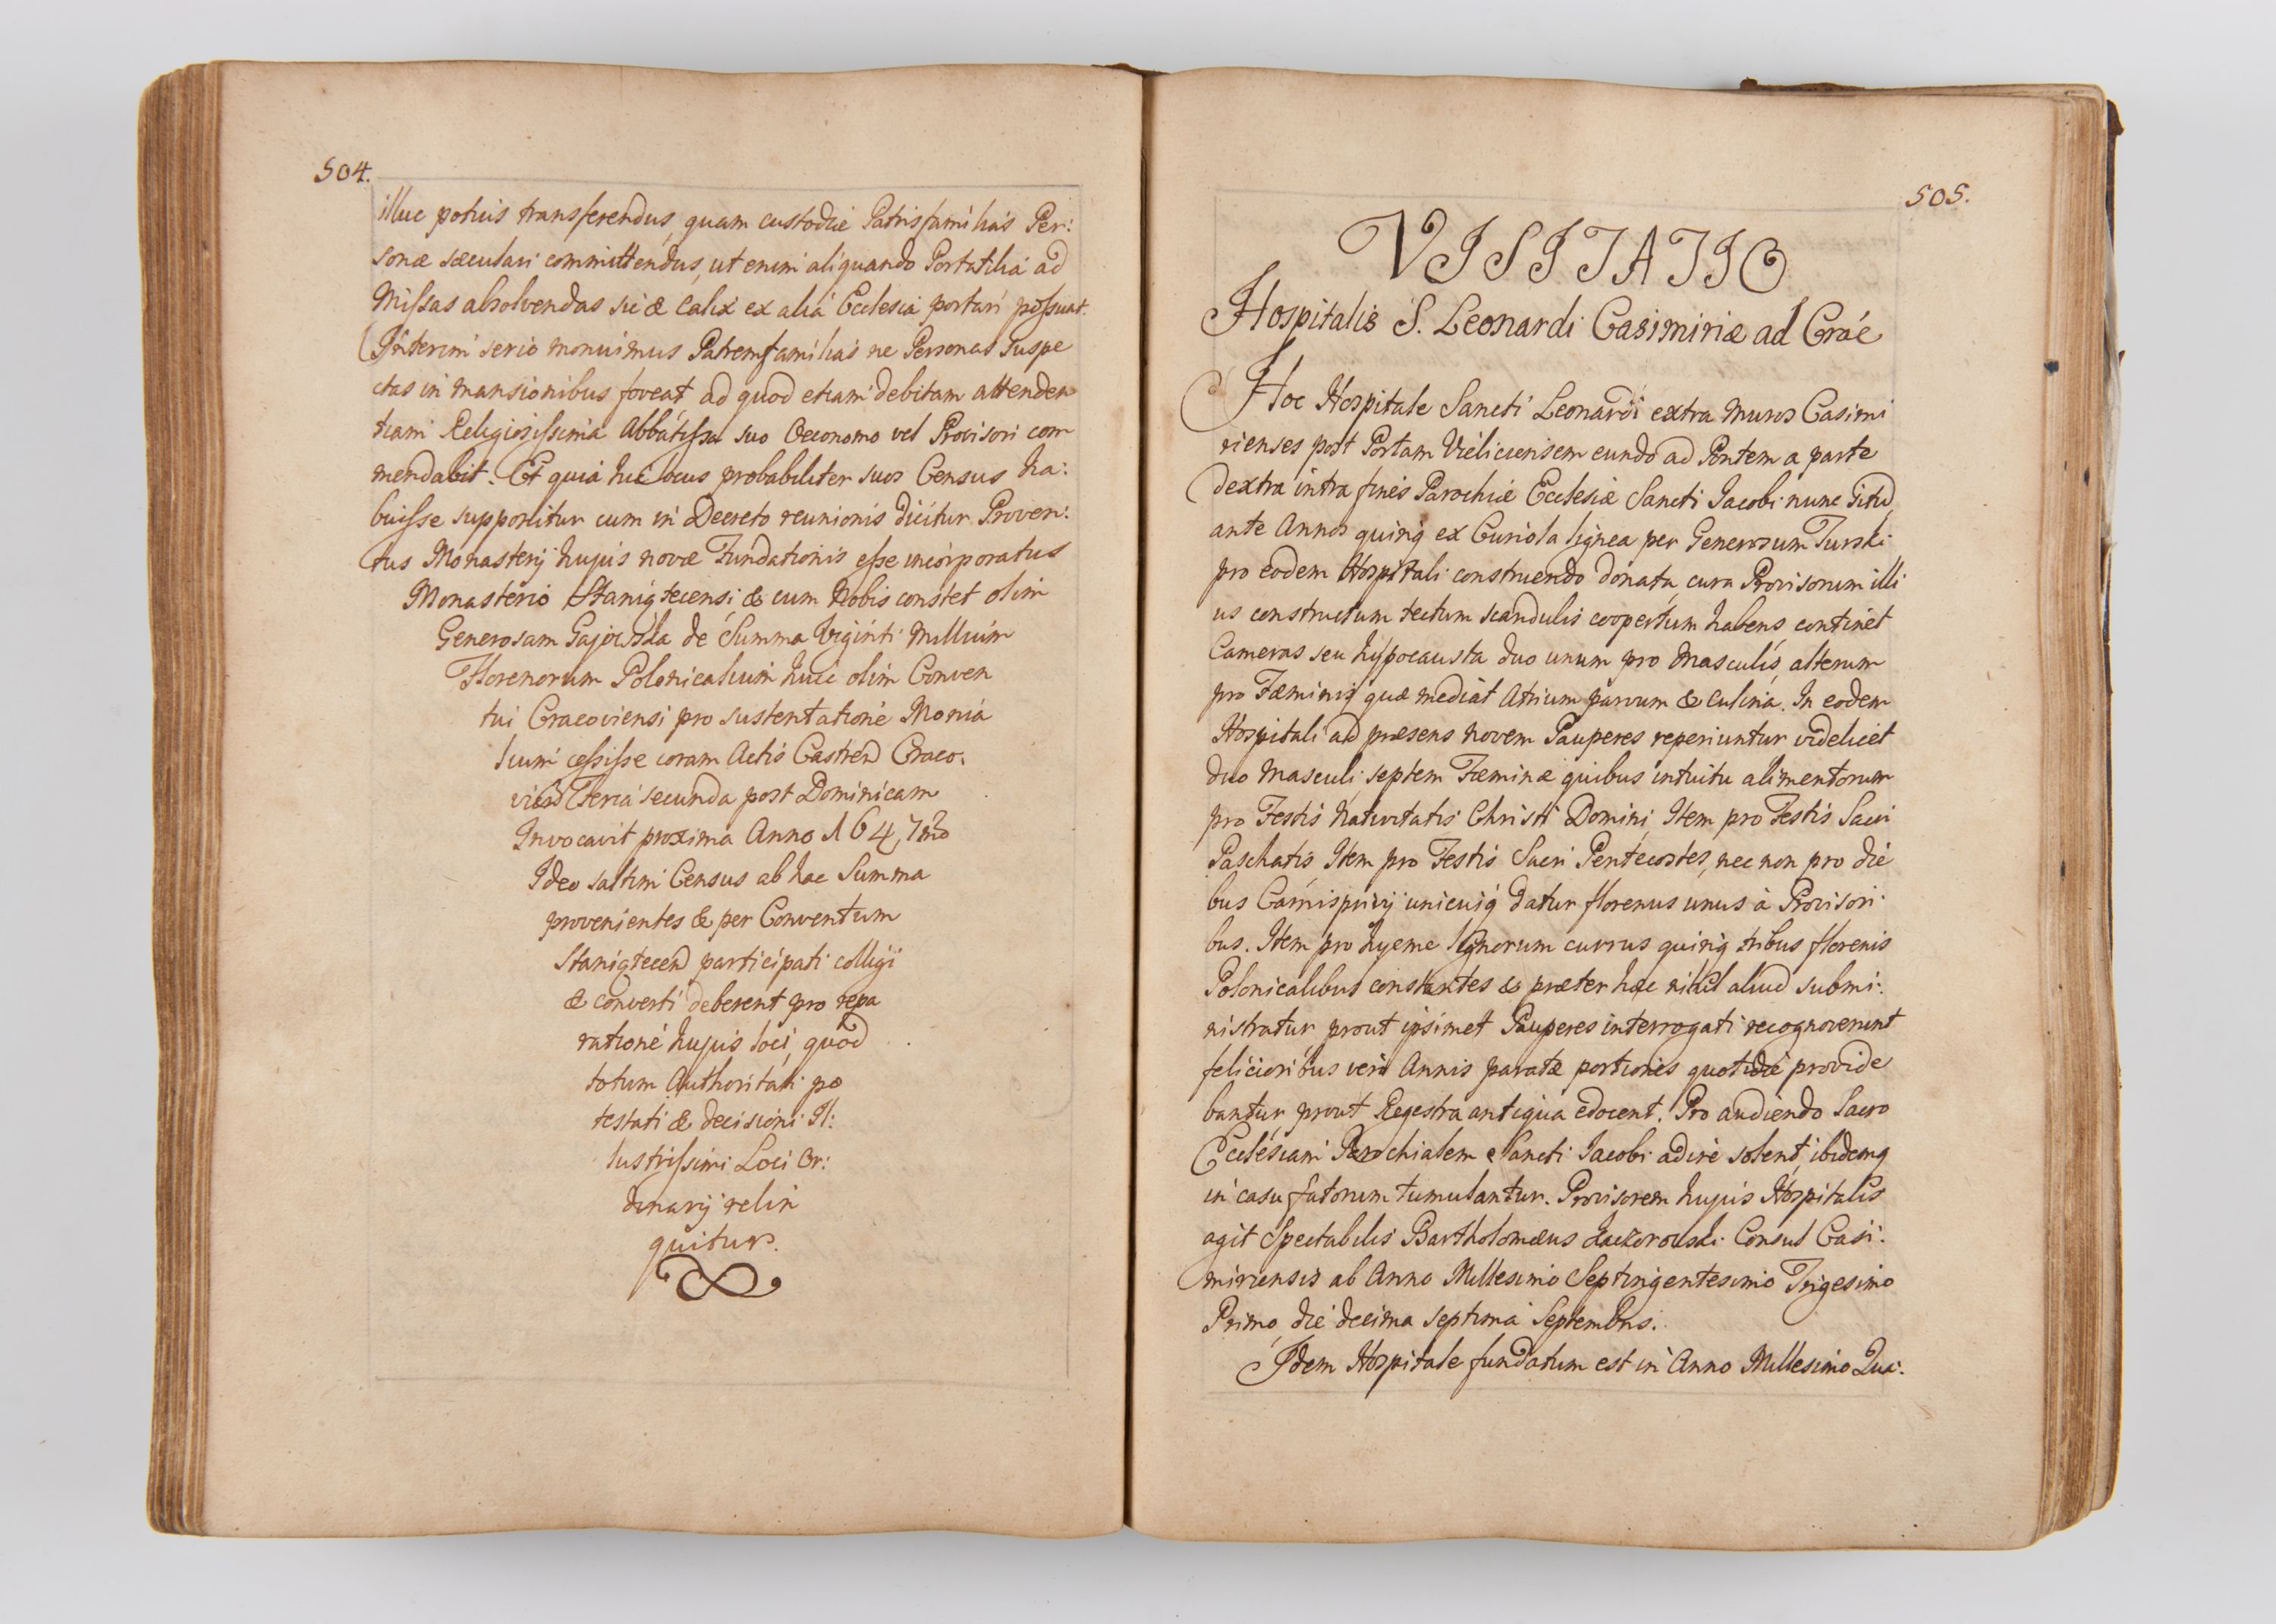 504.
illuc potius transferendus, quam custodiæ Patrisfamilias Per:
sonæ sæculari committendus, ut enim aliquando Portatilia ad
Missas absolvendas sic & Calix ex alia Ecclesia portari possunt.
Interim serio monuimus Patremfamilias ne Personas suspe
ctas in mansionibus foveat ad quod etiam debitam attenden
tiam Religiosissima Abbatissa suo Oeconomo vel Provisori com
mendabit. Et quia hic locus probabiliter suos Census ha:
buisse supponitur cum in Decreto reunionis dicitur Proven:
tus Monasterij hujus novæ Fundationis esse incorporatus
Monasterio Staniątecensi & cum Nobis constet olim
Generosam de Summa Viginti Millium
Florenorum Polonicalium huic olim Conven
tui Cracoviensi pro sustentatione Monia
lium cessisse coram Actis Castren Craco:
vien Feria secunda post Dominicam
Invocavit proxima Anno 1647mo
Ideo saltim Census ab hac Summa
provenientes & per Conventum
Staniątecen participati colligi
& converti deberent pro repa
ratione hujus loci, quod
totum Authoritati po
testati & decisioni Il:
lustrissimi Loci Or:
dinarij relin
quitur.
505.
VISITATIO
Hospitalis S. Leonardi Casimiriæ ad Crac
Hoc Hospitale Sancti Leonardi extra muros Casimi
rienses post Portam Vieliciensem eundo ad Pontem a parte
dextra intra fines Parochiæ Ecclesiæ Sancti Jacobi nunc situ
ante Annos quinq ex Curiola lignea per Generosum Turski
pro eodem Hospitali construendo donata, cura Provisorum illi
us constructum tectum scandulis coopertum habens, continet
Cameras seu hypocausta duo unum pro Masculis, alterum
pro Fæminis quæ mediat Atrium parvum & culina. In eodem
Hospitali ad præsens novem Pauperes reperiuntur videlicet
duo Masculi septem Fæminæ quibus intuitu alimentorum
pro Festis Nativitatis Christi Domini, Item pro Festis Sacri
Paschatis, Item pro Festis Sacri Pentecostes, nec non pro die
bus Carnisprivij unicuiq datur florenus unus à Provisori:
bus. Item pro hyeme lignorum currus quinq tribus florenis
Polonicalibus constantes & præter hæc nihil aliud submi:
nistratur, prout ipsimet Pauperes interrogati recognoverunt
felicioribus vero Annis paratæ portiones quotidie provide
bantur, prout Regestra antiqua edocent. Pro audiendo Sacro
Ecclesiam Parochialem Sancti Jacobi adire solent, ibidemq
in casu fatorum tumulantur. Provisorem hujus Hospitalis
agit Spectabilis Bartholomæus Consul Casi:
miriensis ab Anno Millesimo Septingentesimo Trigesimo
Primo, die decima septima Septembris.
Idem Hospitale fundatum est in Anno Millesimo Qua: